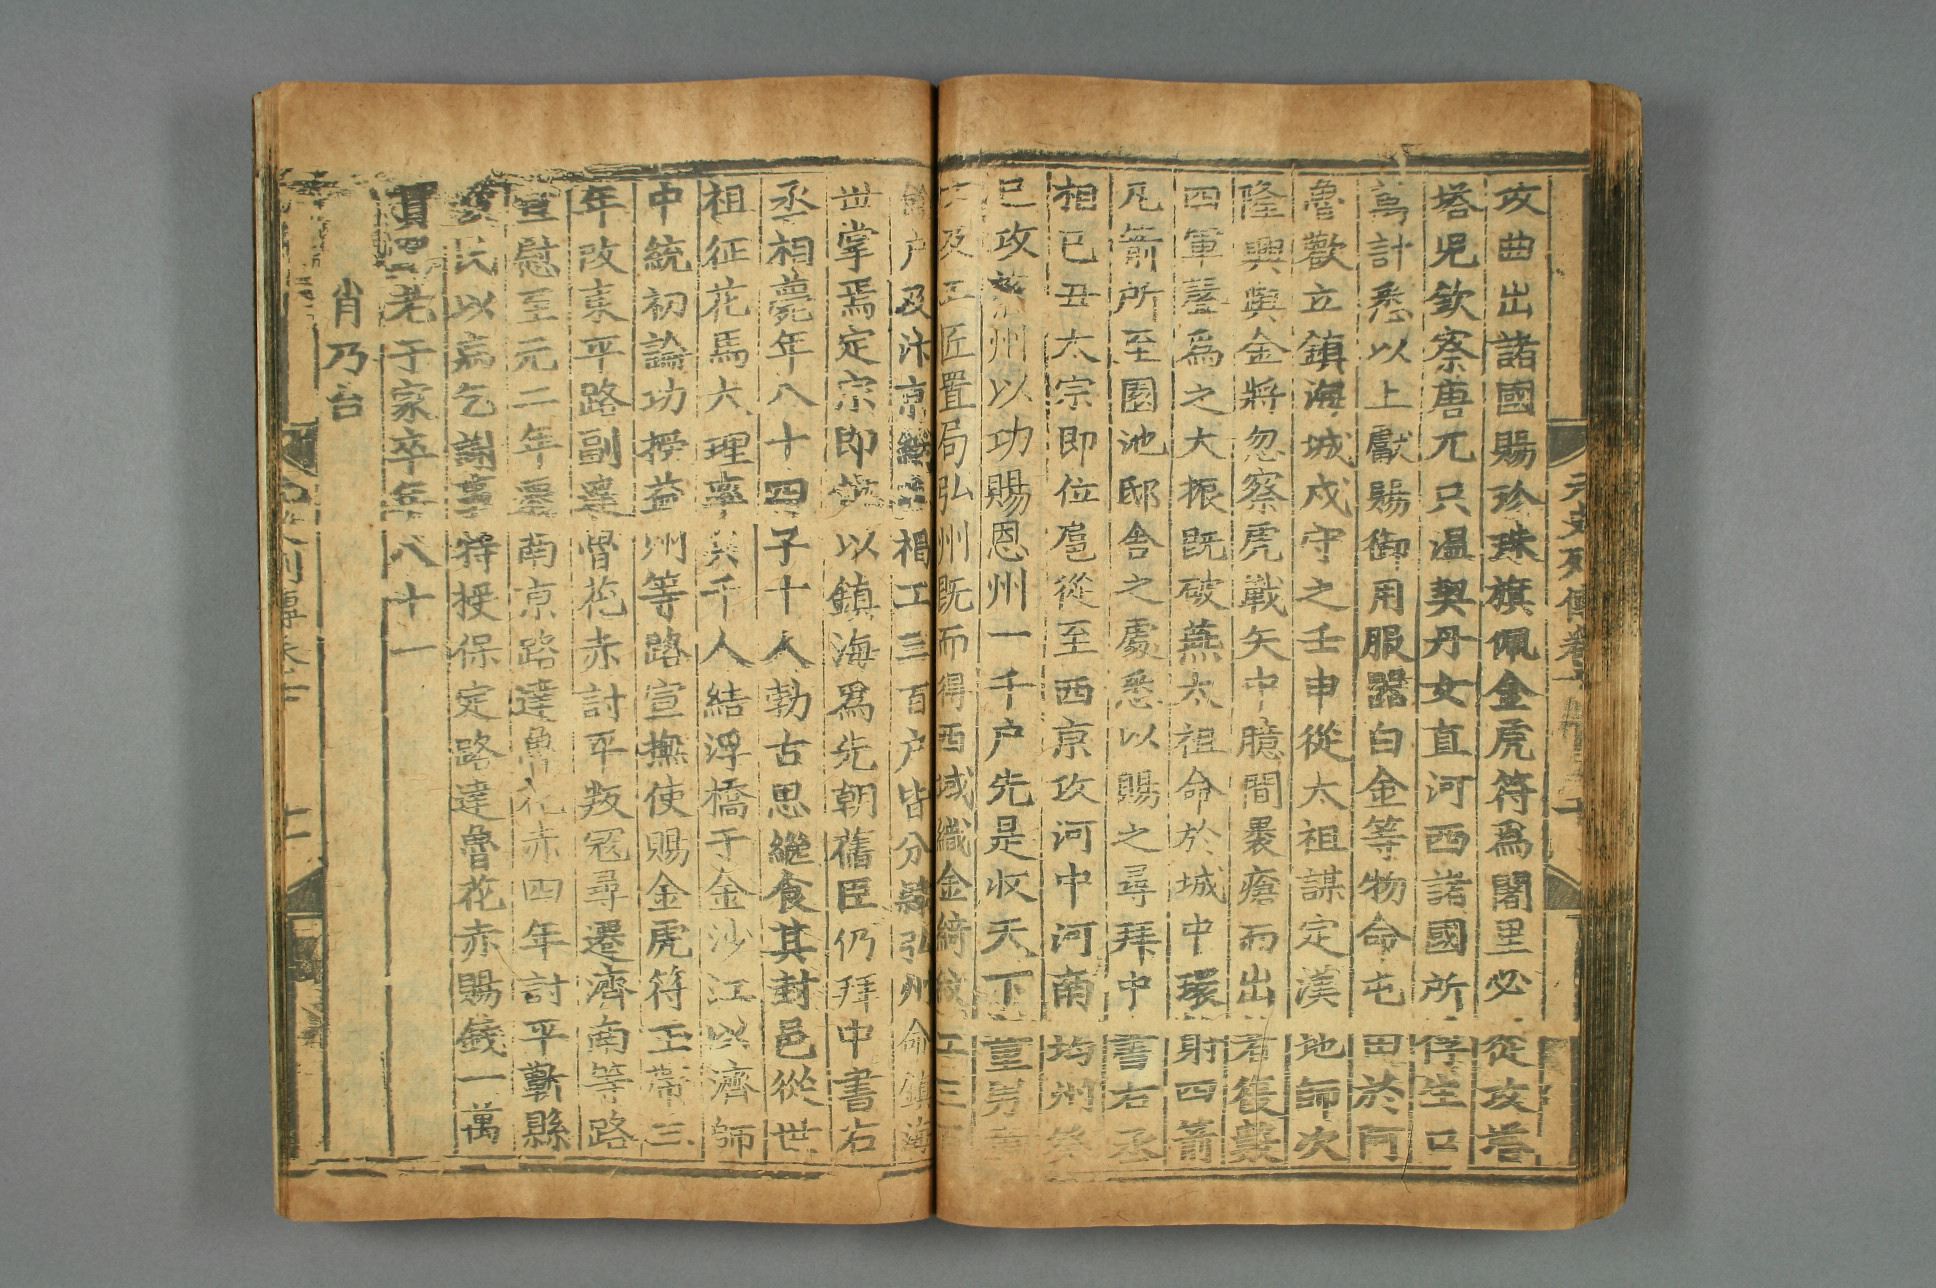 攻曲出諸國賜珍珠旗佩金虎符爲闍里必從攻塔
塔児欽察唐兀只温契丹女直河西諸國所俘生口
萬計悉以上獻賜御用服器白金等物命屯田於阿
魯歡立鎮海城戍守之壬申從太祖謀定漢地師次
隆興與金將忽察虎戰矢中臆間裹瘡而出者復襲
四軍聲爲之大振既破燕太祖命於城中環射四箭
凡箭所至園池邸舎之處悉以賜之尋拜中書右丞
相己丑太宗即位扈從至西京攻河中河南均州癸
巳攻蔡州以功賜恩州一千户先是收天下童男
及工匠置局弘州既而得西域織金綺紋工三
户及汴京織 褐工三百户皆分隸弘州命鎮海
世掌焉定宗即 以鎮海爲先朝舊臣仍拜中書右
丞相薨年八十四子十人勃古思繼食其封邑從世
祖征花馬大理率兵千人結浮橋于金沙江以濟師
中統初論功授益 州等路宣撫使賜金虎符玉帶三
年改東平路副達魯花赤討平叛冦尋遷濟南等路
宣慰至元二年遷南京路達魯花赤四年討平蘄縣
氏以病乞謝事特授保定路達魯花赤賜鈔一萬
貫 老于家卒年八十一
肖乃台
元史列傳卷七 十